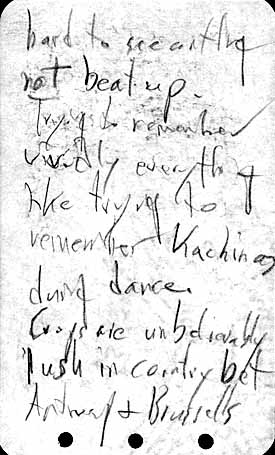 hard to see anything
not beat up.
Trying to remember
vividly everything
like trying to
remember Kachinas
during dance.
Crops are unbelievably
lush in country bet
Antwerp & Brussels